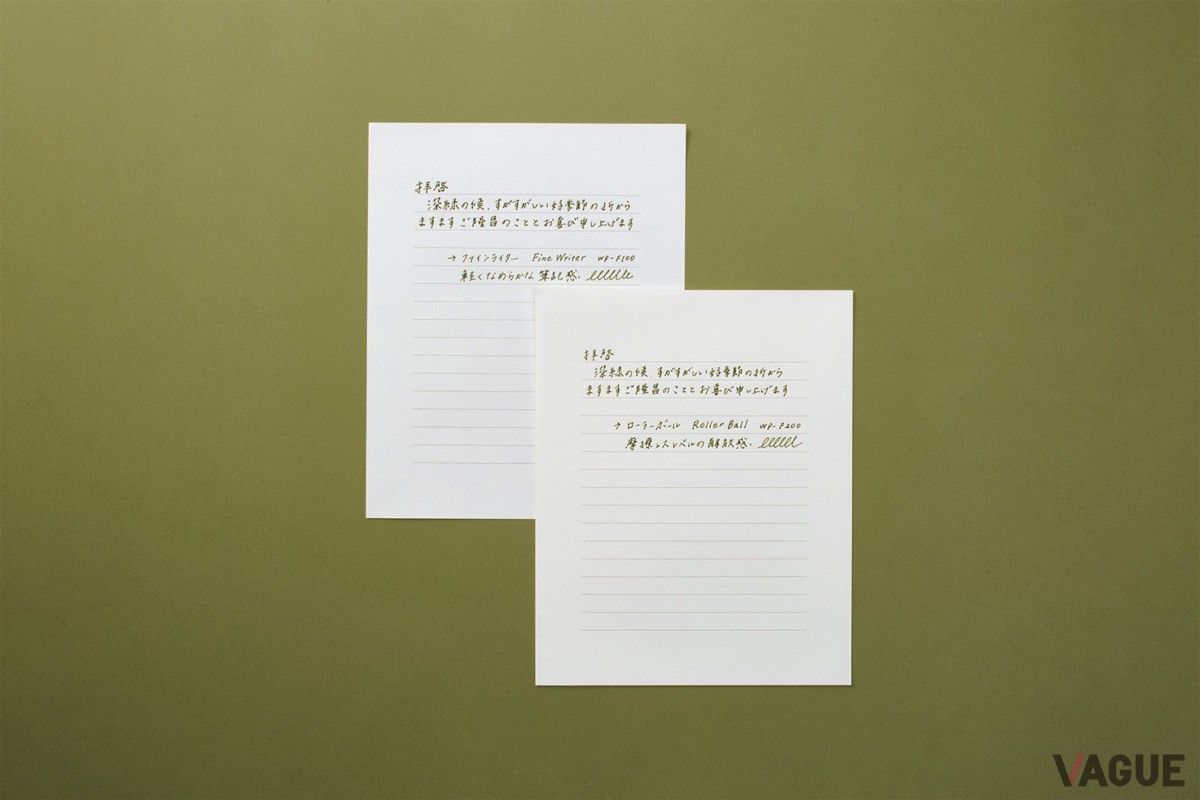 拝啓
深緑の候、すがすがしい好季節の折から
ますますご隆昌のこととお喜び申し上げます
→ ファインライター Fine Writer WP-F100
軽くなめらかな筆記感。
拝啓
深緑の候、すがすがしい好季節の折から
ますますご隆昌のこととお喜び申し上げます
→ ローラーボール Roller Ball WP-F200
摩擦レスレベルの解放感。
VAGUE